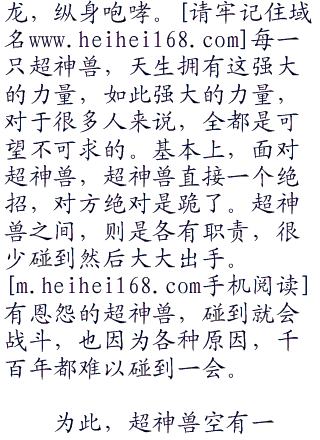 龙，纵身咆哮。[请牢记住域
名www.heihei168.com]每一
只超神兽，天生拥有这强大
的力量，如此强大的力量，
对于很多人来说，全都是可
望不可求的。基本上，面对
超神兽，超神兽直接一个绝
招，对方绝对是跪了。超神
兽之间，则是各有职责，很
少碰到然后大大出手。
[m.heihei168.com手机阅读]
有恩怨的超神兽，碰到就会
战斗，也因为各种原因，千
百年都难以碰到一会。
为此，超神兽空有一